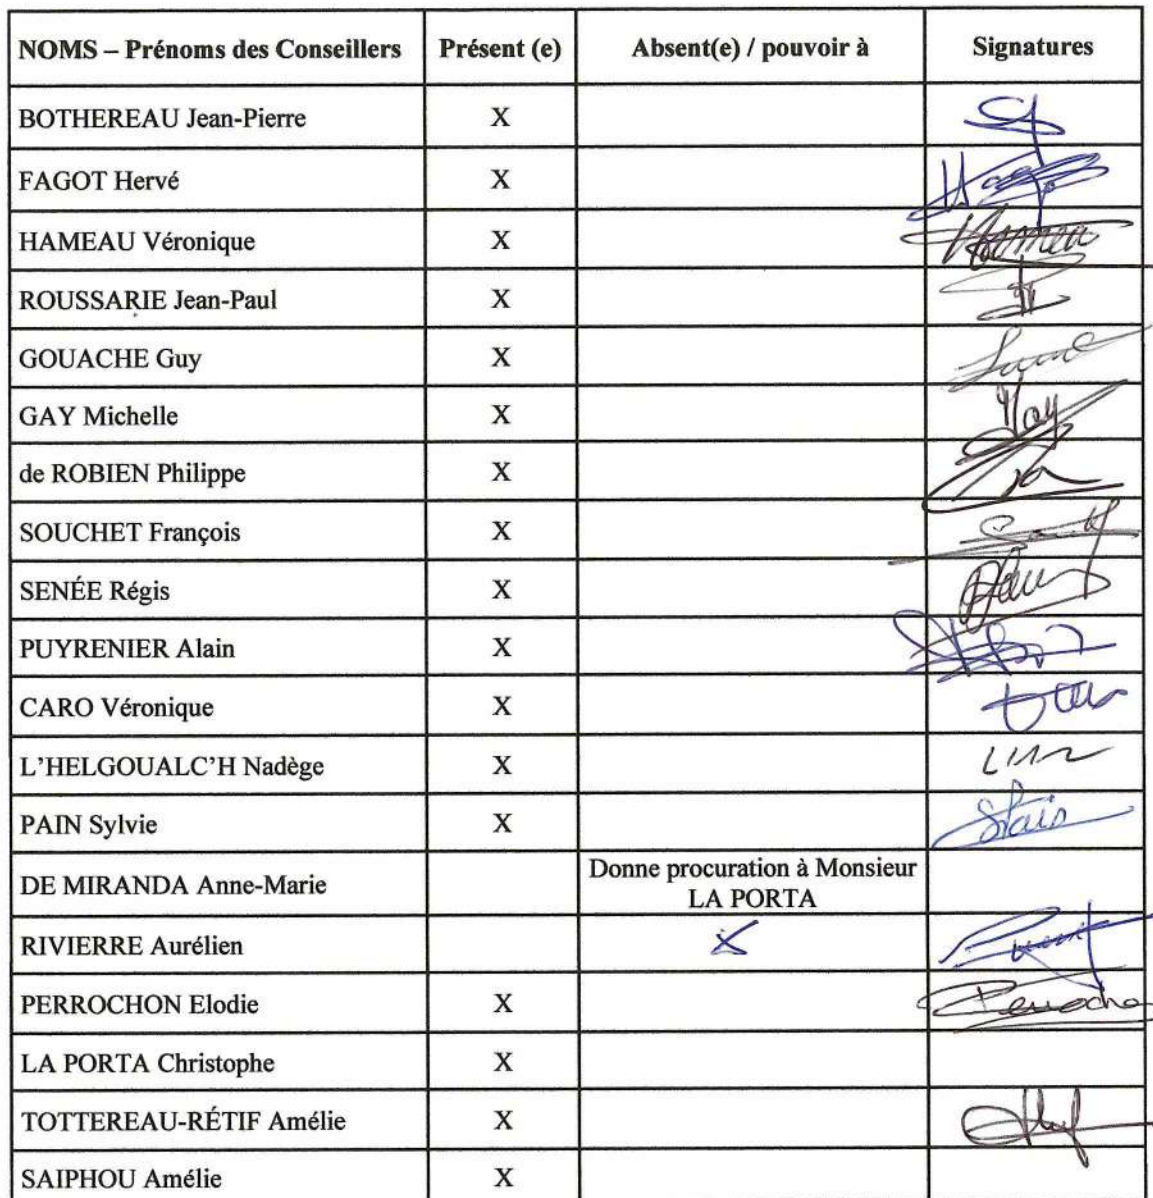 NOMS – Prénoms des Conseillers Présent (e) Absent(e) / pouvoir à Signatures
BOTHEREAU Jean-Pierre X
FAGOT Hervé X
HAMEAU Véronique X
ROUSSARIE Jean-Paul X
GOUACHE Guy X
GAY Michelle X
de ROBIEN Philippe X
SOUCHET François X
SENÉE Régis X
PUYRENIER Alain X
CARO Véronique X
L'HELGOUALC'H Nadège X
PAIN Sylvie X
DE MIRANDA Anne-Marie Donne procuration à Monsieur
LA PORTA
RIVIERRE Aurélien X
PERROCHON Elodie X
LA PORTA Christophe X
TOTTEREAU-RÉTIF Amélie X
SAIPHOU Amélie X